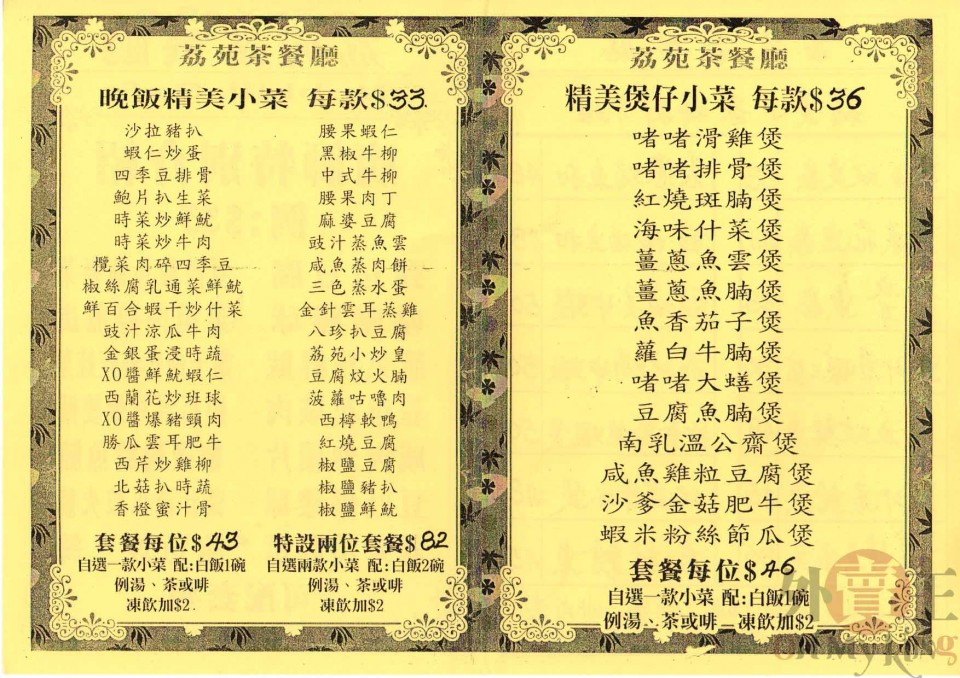 荔苑茶餐廳
晚飯精美小菜 每款$33.
沙拉豬扒
蝦仁炒蛋
四季豆排骨
鮑片扒生菜
時菜炒鮮魷
時菜炒牛肉
欖菜肉碎四季豆
椒絲腐乳通菜鮮魷
鮮百合蝦干炒什菜
豉汁涼瓜牛肉
金銀蛋浸時蔬
XO醬鮮魷蝦仁
西蘭花炒班球
XO醬爆豬頸肉
勝瓜雲耳肥牛
西芹炒雞柳
北菇扒時蔬
香橙蜜汁骨
腰果蝦仁
黑椒牛柳
中式牛柳
腰果肉丁
麻婆豆腐
豉汁蒸魚雲
咸魚蒸肉餅
三色蒸水蛋
金針雲耳蒸雞
八珍扒豆腐
荔苑小炒皇
豆腐炆火腩
菠蘿咕嚕肉
西檸軟鴨
紅燒豆腐
椒鹽豆腐
椒鹽豬扒
椒鹽鮮魷
套餐每位$43
自選一款小菜 配:白飯1碗
例湯、茶或啡
凍飲加$2.
特設兩位套餐$82
自選兩款小菜 配:白飯2碗
例湯、茶或啡
凍飲加$2
荔苑茶餐廳
精美煲仔小菜 每款$36
啫啫滑雞煲
啫啫排骨煲
紅燒斑腩煲
海味什菜煲
薑蔥魚雲煲
薑蔥魚腩煲
魚香茄子煲
蘿白牛腩煲
啫啫大蟮煲
豆腐魚腩煲
南乳溫公齋煲
咸魚雞粒豆腐煲
沙爹金菇肥牛煲
蝦米粉絲節瓜煲
套餐每位$46
自選一款小菜 配:白飯1碗
例湯、茶或啡 凍飲加$2
外賣王
Oh My Kong